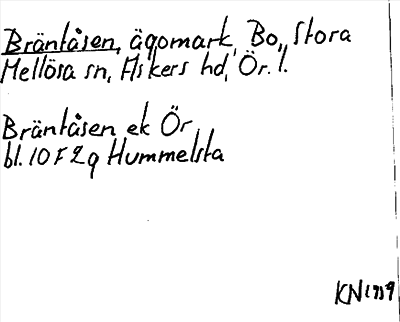 Bräntåsen, ägomark, Bo, Stora
Mellösa sn, Askers hd, Ör. l.
Bräntåsen ek Ör
bl. 10 F 2 g Hummelsta
KN 1989